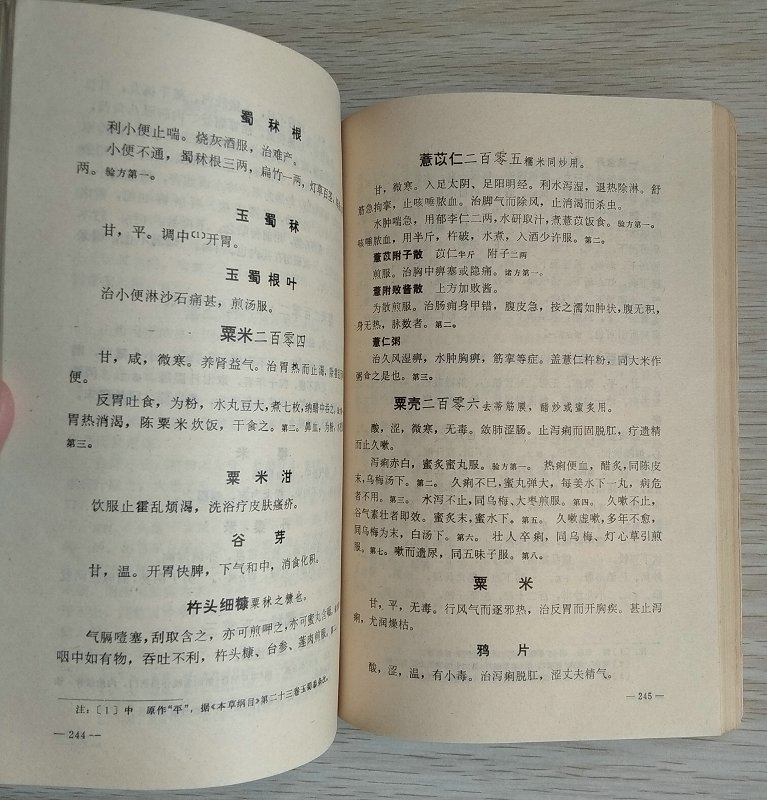 蜀秫根
利小便止喘。烧灰酒服，治难产。
小便不通，蜀秫根三两，扁竹一两，灯草百茎，
两。验方第一。
玉蜀秫
甘，平。调中〔1〕开胃。
玉蜀根叶
治小便淋沙石痛甚，煎汤服。
粟米二百零四
甘，咸，微寒。养肾益气。治胃热而止渴，
便。
反胃吐食，为粉，水丸豆大，煮七枚，纳醋中吞之。
胃热消渴，陈粟米炊饭，干食之。第二。鼻血，为粉，
第三。
粟米泔
饮服止霍乱烦渴，洗浴疗皮肤瘙疥。
谷芽
甘，温。开胃快脾，下气和中，消食化积。
杵头细糠粟秫之糠也。
气膈噎塞，刮取含之，亦可煎呷之，亦可蜜丸含咽。
咽中如有物，吞吐不利，杵头糠、台参、莲肉煎服。第二
注：〔1〕中 原作“平”，据《本草纲目》第二十三卷玉蜀黍条改。
—244—
薏苡仁二百零五糯米同炒用。
甘，微寒。入足太阴、足阳明经。利水泻湿，退热除淋。舒
筋急拘挛，止咳唾脓血。治脚气而除风，止消渴而杀虫。
水肿喘急，用郁李仁二两，水研取汁，煮薏苡饭食。验方第一。
咳唾脓血，用半斤，杵破，水煮，入酒少许服。第二。
薏苡附子散 苡仁半斤 附子二两
煎服。治胸中痹塞或隐痛。诸方第一。
薏附败酱散 上方加败酱。
为散煎服。治肠痈身甲错，腹皮急，按之濡如肿状，腹无积，
身无热，脉数者。第二。
薏仁粥
治久风湿痹，水肿胸痹，筋挛等症。盖薏仁杵粉，同大米作
粥食之是也。第三。
粟壳二百零六去蒂筋膜，醋炒或蜜炙用。
酸，涩，微寒，无毒。敛肺涩肠。止泻痢而固脱肛，疗遗精
而止久嗽。
泻痢赤白，蜜炙蜜丸服。验方第一。 热痢便血，醋炙，同陈皮
末，乌梅汤下。第二。 久痢不已，蜜丸弹大，每姜水下一丸，病危
者不用。第三。 水泻不止，同乌梅、大枣煎服。第四。 久嗽不止，
谷气素壮者即效。蜜炙末，蜜水下。第五。 久嗽虚嗽，多年不愈，
同乌梅为末，白汤下。第六。 壮人卒痢，同乌梅、灯心草引煎
服，第七。嗽而遗尿，同五味子服。第八。
粟米
甘，平，无毒。行风气而逐邪热，治反胃而开胸疾。甚止泻
痢，尤润燥枯。
鸦片
酸，涩，温，有小毒。治泻痢脱肛，涩丈夫精气。
—245—